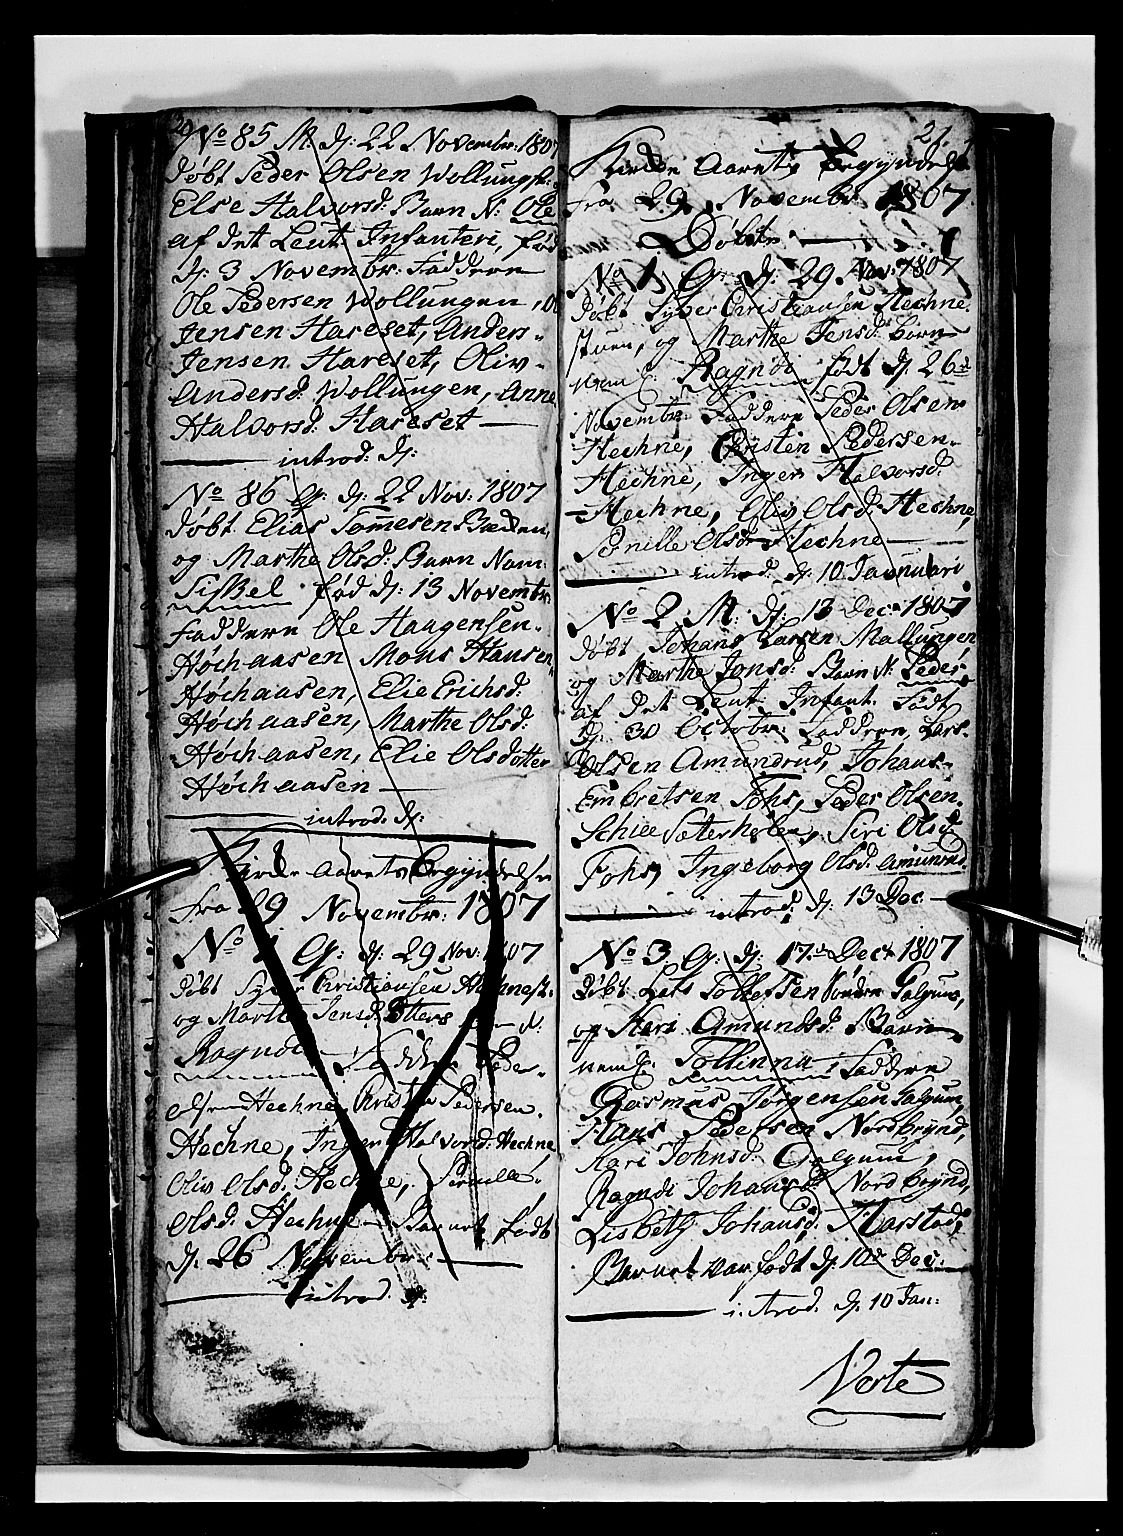 20
No 85 M. dj: 22 Novembr: 1807
døbt Peder Olsen Wollung
Else Halvorsd: Barn N: Ole
af det Leut: Infanteri, fød
dj: 3 Novembr: Faddere
Ole Pedersen Wollungen, Ole
Jensen Hareset, Anders
Jensen Hareset, Oliv
Andersd. Wollungen, Anne
Halvorsd: Hareset
introd: dj:
No 86 q: dj: 22 Nov: 1807
døbt Elias Tommesen
og Marthe Olsd: Barn Nam:
Sisßel fød dj: 13 Novembr:
Faddere Ole Haagensen
Høchaasen, Mons Hansen
Høchaasen, Elie Erichsd:
Høchaasen, Marthe Olsd:
Høchaasen, Elie Olsdotter
Høchaasen
introd. dj:
Kirke Aarets Begyndelse
fra 29 Novembr: 1807
No 1 q: dj: 29 Nov: 1807
døbt Syver Christiansen Hechnest:
og Marthe Jensd: Barn N:
Ragndi Faddere Peder
Olsen Hechne, Christen Pedersen
Hechne, Inger Halvorsd: Hechne
Oliv Olsd: Hechne, Pernille
Olsd: Hechne Barnet født
dj. 26 Novembr:
introd. dj:
21.
Kirke Aarets Begyndelse
fra 29 Novembr 1807
Døbte
No 1 q: dj: 29. Nov: 1807
døbt Syver Christiansen Hechne
stuen, og Marthe Jensd: barn
Ragndi født dj. 26d
Novembr: Faddere Peder Olsen
Hechne, Christen Pedersen
Hechne, Inger Halvorsd:
Hechne, Oliv Olsd: Hechne,
Pernille Olsdr Hechne
introd. dj. 10 Januari
No 2 M: dj: 13 Dec: 1807
døbt Johans Larsen Mallungen
og Marthe Jonsd: Barn N: Peder
af det Leut: Infant. Født
dj. 30 Octobr: Faddere, Lars
Olsen Amundrud, Johans
Embretsen Fohs, Peder Olsen
Schiee Sæterholen, Siri Olsd
Fohs, Ingeborg Olsd. Amunrud
introd. dj. 13 Dec.
No 3 q: dj: 17d Decr 1807
døbt Lars Tollefsen Søndre Galgum,
og Kari Amundsd: Barn
Tollinna Faddere
Rasmus Jørgensen Galgum,
Hans Pedersen Nordbrynd,
Kari Johnsd: Galgum,
Ragndi Johansd: Nordbrynd,
Lisbeth Johansd: Harstad,
Barnet var født dj 10d Dec:
introd. dj. 10 Jan:
Verte